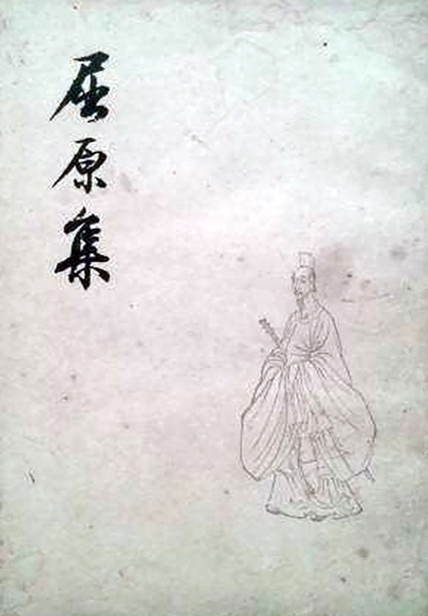 屈原集